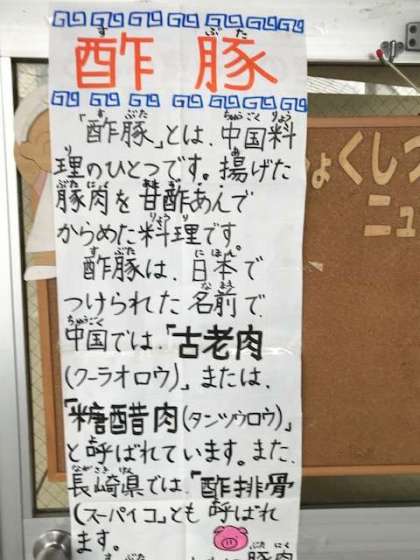 酢豚
すぶた
「酢豚」とは、中国料
理のひとつです。揚げた
豚肉を甘酢あんで
からめた料理です。
酢豚は、日本で
つけられた名前で、
中国では、「古老肉
(クーラオロウ)」または、
「糖醋肉(タンツウロウ)」
と呼ばれています。また、
長崎県では、「酢排骨
(スーパイコ」とも呼ばれ
ます。
くしつ
ニュ